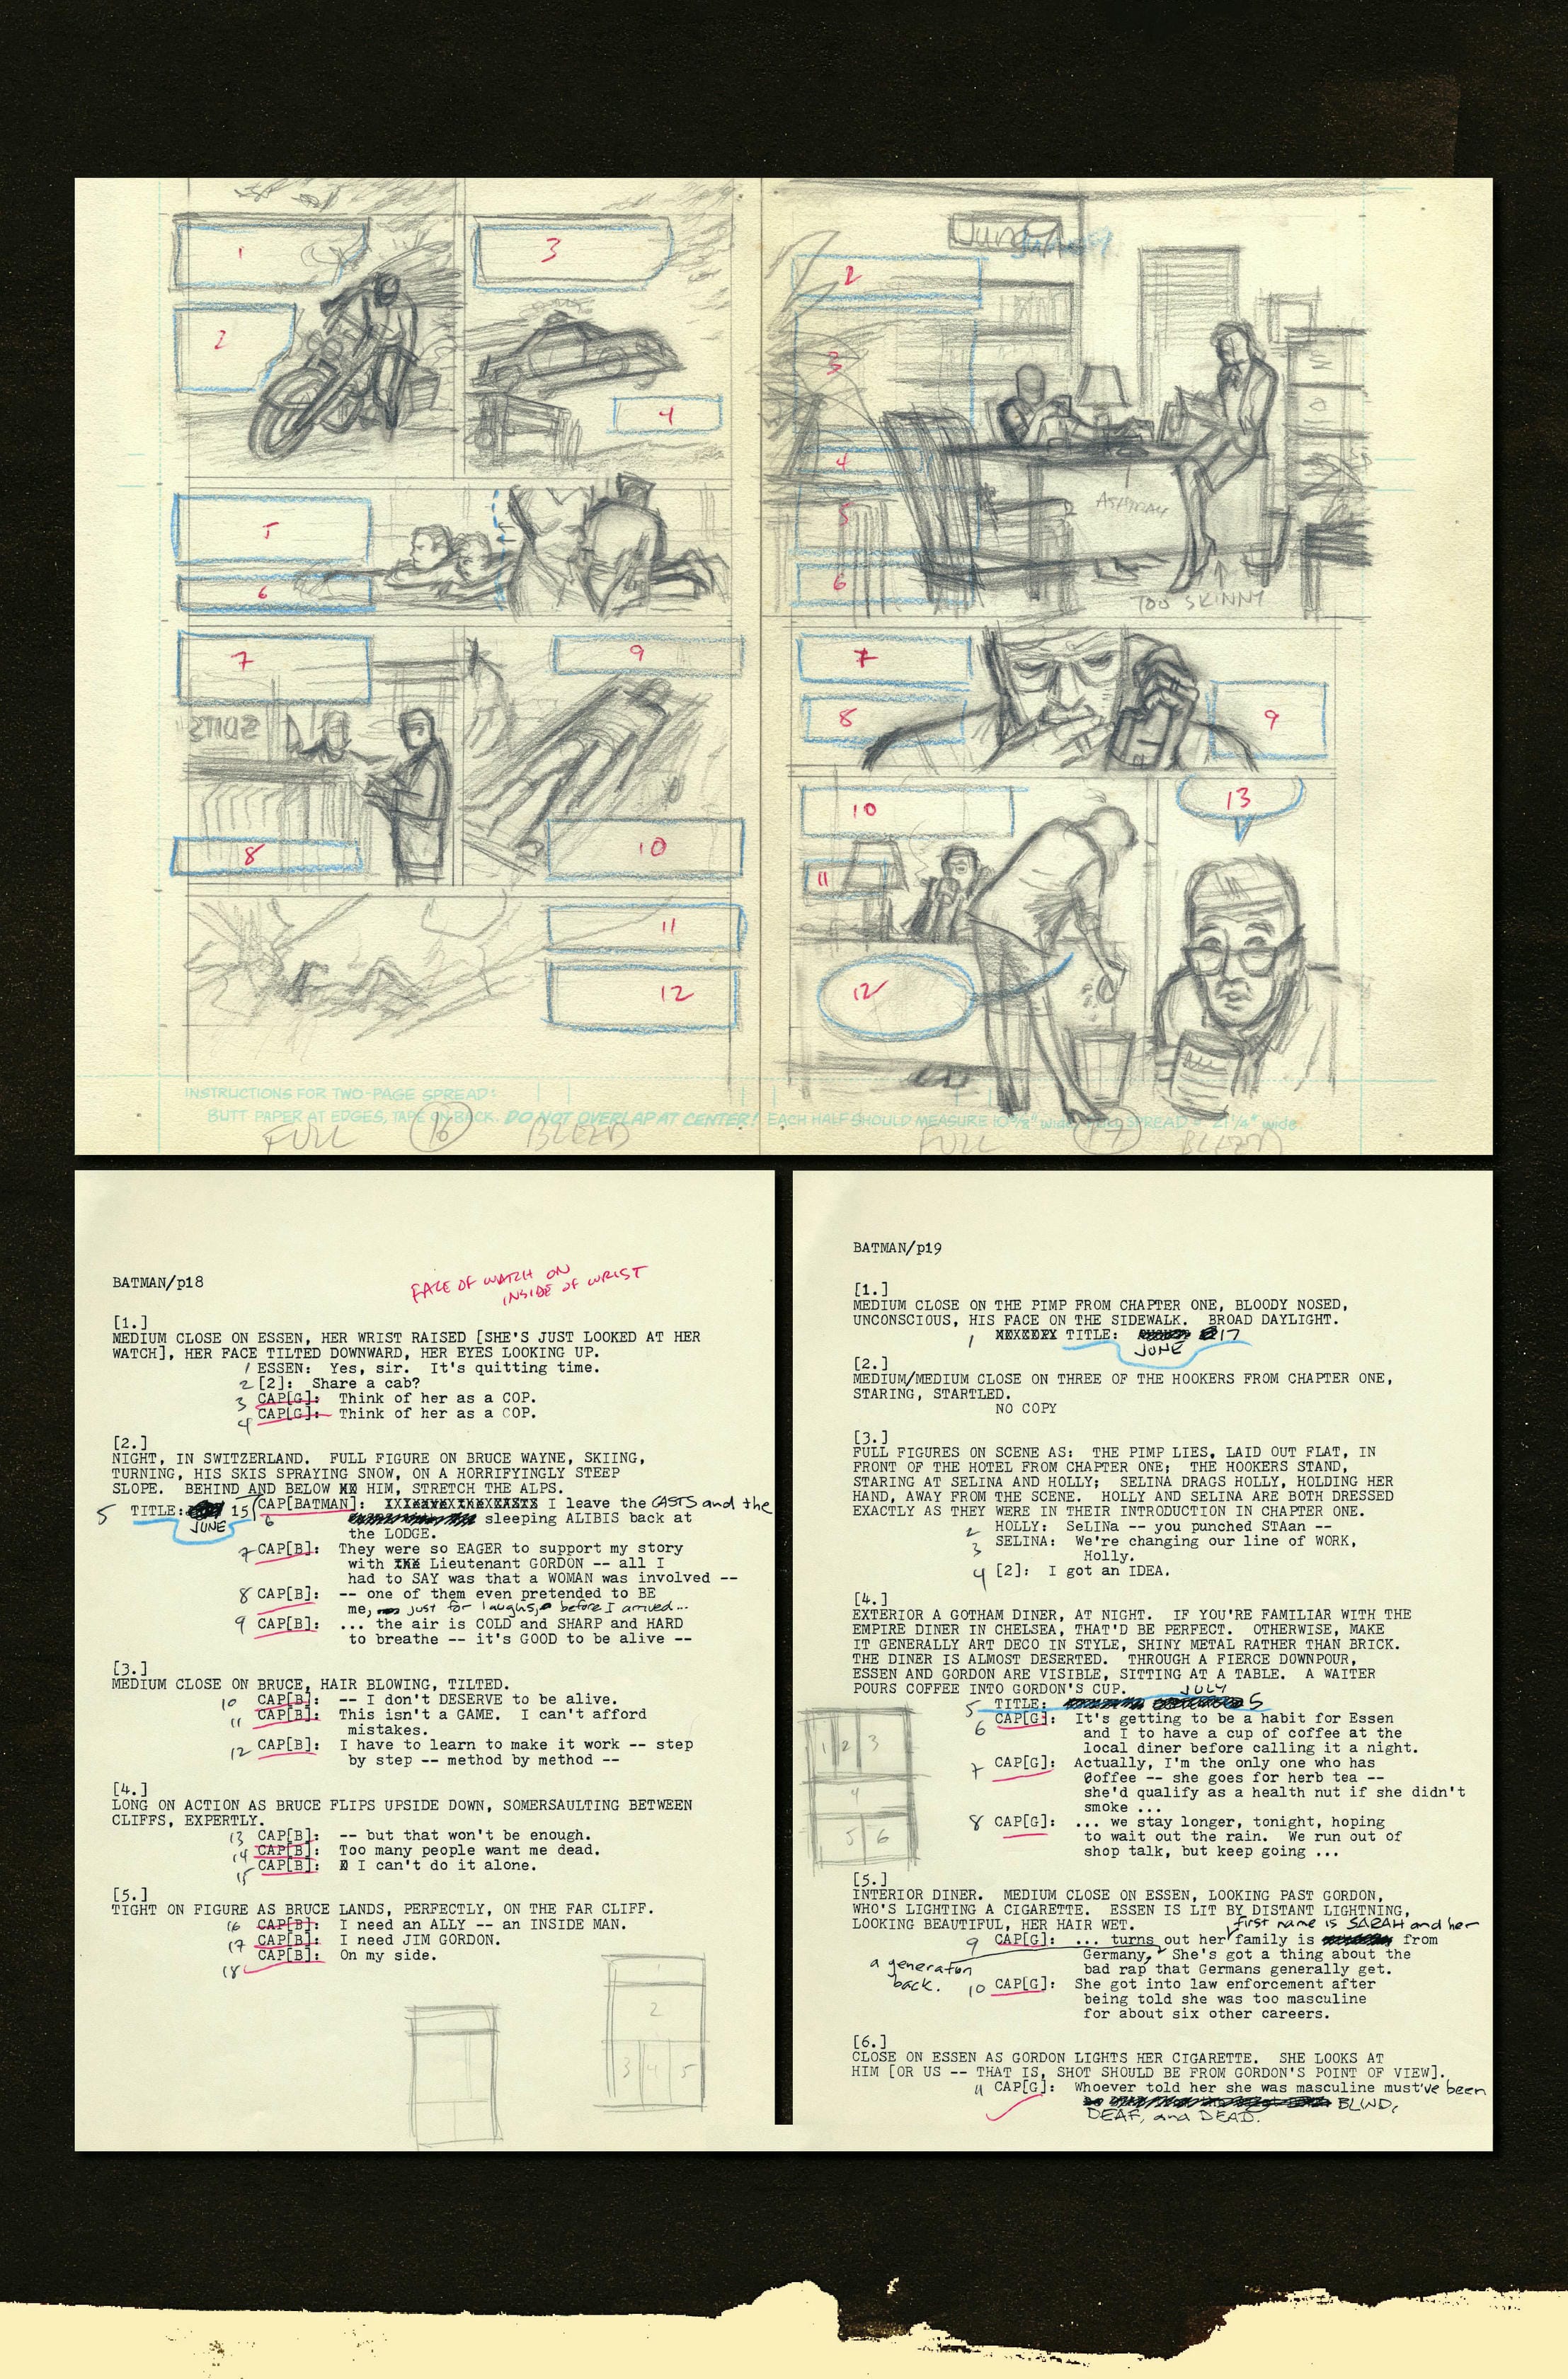 1
3
2
4
5
6
7
9
SUITS
8
10
11
12
June
2
3
4
5
6
ASHTRAY
TOO SKINNY
7
8
9
10
13
11
12
INSTRUCTIONS FOR TWO-PAGE SPREAD:
BUTT PAPER AT EDGES, TAPE ON BACK. DO NOT OVERLAP AT CENTER! EACH HALF SHOULD MEASURE 10 5/8" wide. SPREAD = 21 1/4" wide
FULL 16 BLEED
FULL 17 BLEED
BATMAN/p18
FACE OF WATCH ON
INSIDE OF WRIST
[1.]
MEDIUM CLOSE ON ESSEN, HER WRIST RAISED [SHE'S JUST LOOKED AT HER
WATCH], HER FACE TILTED DOWNWARD, HER EYES LOOKING UP.
1 ESSEN: Yes, sir. It's quitting time.
2 [2]: Share a cab?
3 CAP[G]: Think of her as a COP.
4 CAP[G]: Think of her as a COP.
[2.]
NIGHT, IN SWITZERLAND. FULL FIGURE ON BRUCE WAYNE, SKIING,
TURNING, HIS SKIS SPRAYING SNOW, ON A HORRIFYINGLY STEEP
SLOPE. BEHIND AND BELOW HIM, STRETCH THE ALPS.
5 TITLE: JUNE 15 6 CAP[BATMAN]: I leave the CASTS and the
sleeping ALIBIS back at
the LODGE.
7 CAP[B]: They were so EAGER to support my story
with Lieutenant GORDON -- all I
had to SAY was that a WOMAN was involved --
8 CAP[B]: -- one of them even pretended to BE
me, just for laughs, before I arrived...
9 CAP[B]: ... the air is COLD and SHARP and HARD
to breathe -- it's GOOD to be alive --
[3.]
MEDIUM CLOSE ON BRUCE, HAIR BLOWING, TILTED.
10 CAP[B]: -- I don't DESERVE to be alive.
11 CAP[B]: This isn't a GAME. I can't afford
mistakes.
12 CAP[B]: I have to learn to make it work -- step
by step -- method by method --
[4.]
LONG ON ACTION AS BRUCE FLIPS UPSIDE DOWN, SOMERSAULTING BETWEEN
CLIFFS, EXPERTLY.
13 CAP[B]: -- but that won't be enough.
14 CAP[B]: Too many people want me dead.
15 CAP[B]: I can't do it alone.
[5.]
TIGHT ON FIGURE AS BRUCE LANDS, PERFECTLY, ON THE FAR CLIFF.
16 CAP[B]: I need an ALLY -- an INSIDE MAN.
17 CAP[B]: I need JIM GORDON.
18 CAP[B]: On my side.
1
2
3 4 5
BATMAN/p19
[1.]
MEDIUM CLOSE ON THE PIMP FROM CHAPTER ONE, BLOODY NOSED,
UNCONSCIOUS, HIS FACE ON THE SIDEWALK. BROAD DAYLIGHT.
1 TITLE: JUNE 17
[2.]
MEDIUM/MEDIUM CLOSE ON THREE OF THE HOOKERS FROM CHAPTER ONE,
STARING, STARTLED.
NO COPY
[3.]
FULL FIGURES ON SCENE AS: THE PIMP LIES, LAID OUT FLAT, IN
FRONT OF THE HOTEL FROM CHAPTER ONE; THE HOOKERS STAND,
STARING AT SELINA AND HOLLY; SELINA DRAGS HOLLY, HOLDING HER
HAND, AWAY FROM THE SCENE. HOLLY AND SELINA ARE BOTH DRESSED
EXACTLY AS THEY WERE IN THEIR INTRODUCTION IN CHAPTER ONE.
2 HOLLY: SeLINa -- you punched STAan --
3 SELINA: We're changing our line of WORK,
Holly.
4 [2]: I got an IDEA.
[4.]
EXTERIOR A GOTHAM DINER, AT NIGHT. IF YOU'RE FAMILIAR WITH THE
EMPIRE DINER IN CHELSEA, THAT'D BE PERFECT. OTHERWISE, MAKE
IT GENERALLY ART DECO IN STYLE, SHINY METAL RATHER THAN BRICK.
THE DINER IS ALMOST DESERTED. THROUGH A FIERCE DOWNPOUR,
ESSEN AND GORDON ARE VISIBLE, SITTING AT A TABLE. A WAITER
POURS COFFEE INTO GORDON'S CUP.
5 TITLE: JULY 5
6 CAP[G]: It's getting to be a habit for Essen
and I to have a cup of coffee at the
local diner before calling it a night.
7 CAP[G]: Actually, I'm the only one who has
coffee -- she goes for herb tea --
she'd qualify as a health nut if she didn't
smoke ...
8 CAP[G]: ... we stay longer, tonight, hoping
to wait out the rain. We run out of
shop talk, but keep going ...
1 2 3
4
5 6
[5.]
INTERIOR DINER. MEDIUM CLOSE ON ESSEN, LOOKING PAST GORDON,
WHO'S LIGHTING A CIGARETTE. ESSEN IS LIT BY DISTANT LIGHTNING,
LOOKING BEAUTIFUL, HER HAIR WET.
9 CAP[G]: ... turns out her first name is SARAH and her family is from
Germany, a generation back. She's got a thing about the
bad rap that Germans generally get.
10 CAP[G]: She got into law enforcement after
being told she was too masculine
for about six other careers.
[6.]
CLOSE ON ESSEN AS GORDON LIGHTS HER CIGARETTE. SHE LOOKS AT
HIM [OR US -- THAT IS, SHOT SHOULD BE FROM GORDON'S POINT OF VIEW].
11 CAP[G]: Whoever told her she was masculine must've been
BLIND,
DEAF, and DEAD.